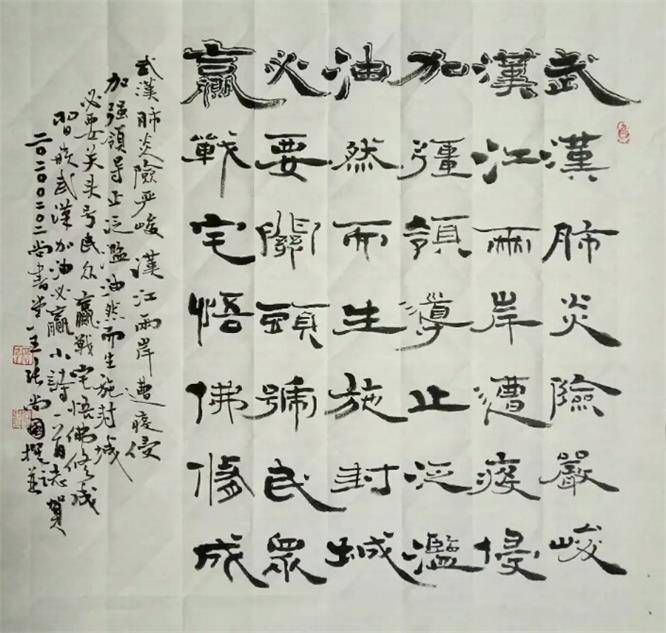 武漢肺炎險嚴峻
漢江兩岸遭疫侵
加彊領導止泛濫
油然而生施封城
必要關頭號民眾
贏戰宅悟佛修成
武漢肺炎險严峻 漢江兩岸遭疫侵
加强領导止泛濫 油然而生施封城
必要关头号民众 贏戰宅悟佛修成
嵌武漢加油必贏小詩一首誌賀
二〇二〇〇二〇二尚書堂主張尚國撰並